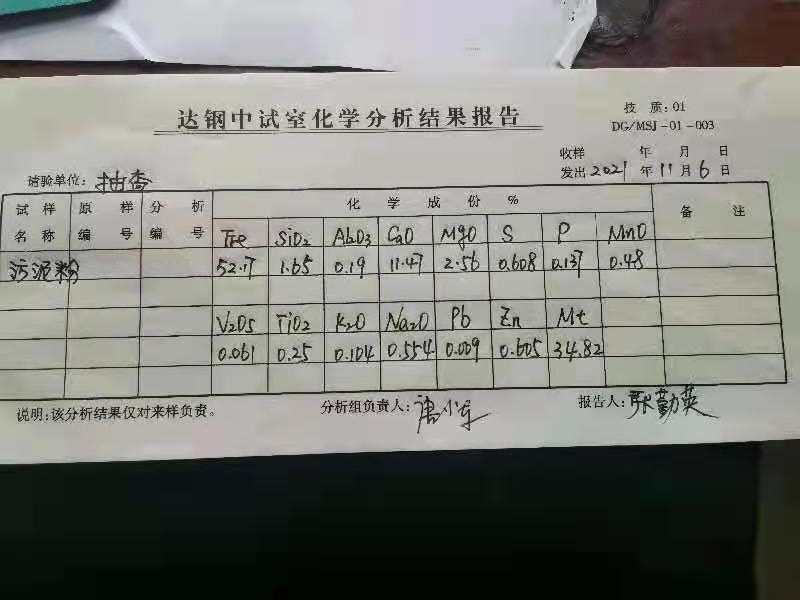 达钢中试室化学分析结果报告
技 质:01
DG/MSJ-01-003
收样 年 月 日
请验单位: 抽查 发出 2021 年 11 月 6 日
试样名称 原样编号 分析编号 化学成份% 备注
TFe SiO2 Al2O3 CaO MgO S P MnO
污泥粉 52.17 1.65 0.19 11.47 2.56 0.608 0.137 0.48
V2O5 TiO2 K2O Na2O Pb Zn Mt
0.061 0.25 0.104 0.554 0.009 0.605 34.82
说明:该分析结果仅对来样负责。 分析组负责人: 报告人: